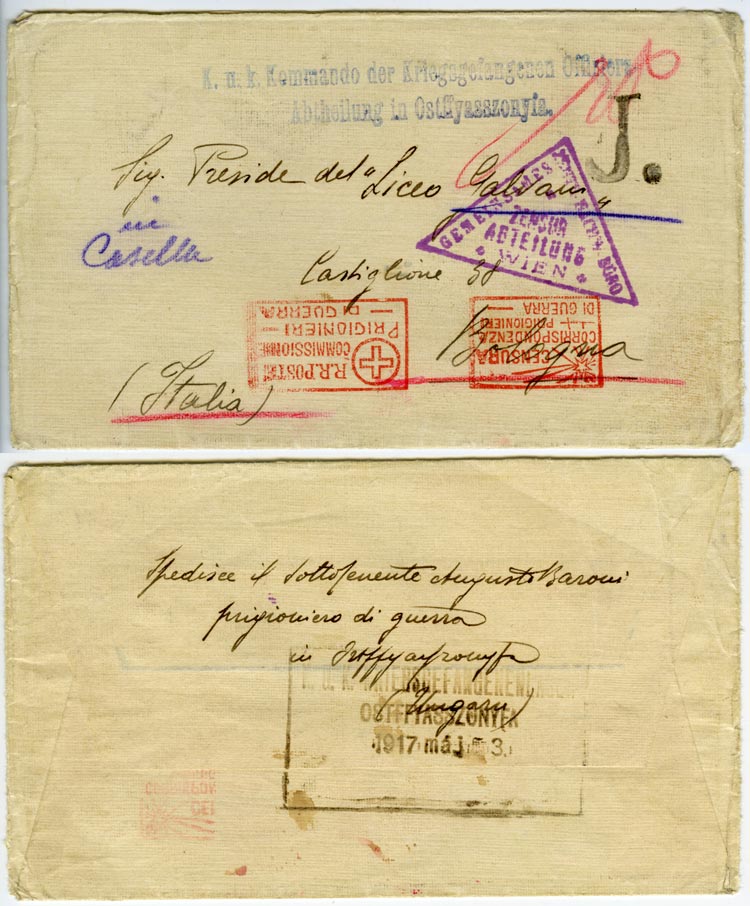 K. u. k. Kommando der Kriegsgefangenen Offiziers
Abtheilung in Ostffyasszonyfa.
J.
Sig. Preside del "Liceo Galvani"
in
Casella
GEMEINSAMES ZENTRALNACHW. BÜRO
ZENSUR
ABTEILUNG
WIEN
Castiglione 38
Bologna
(Italia)
R.R. POSTE
COMMISSIONE
PRIGIONIERI
DI GUERRA
CENSURA
CORRISPONDENZA
PRIGIONIERI
DI GUERRA
Spedisce il Sottotenente Augusto Baroni
prigioniero di guerra
in Ostffyasszonyfa
(Ungaru)
K. u. K. KRIEGSGEFANGENENLAGER
OSTFFYASSZONYFA
1917 máj 3.